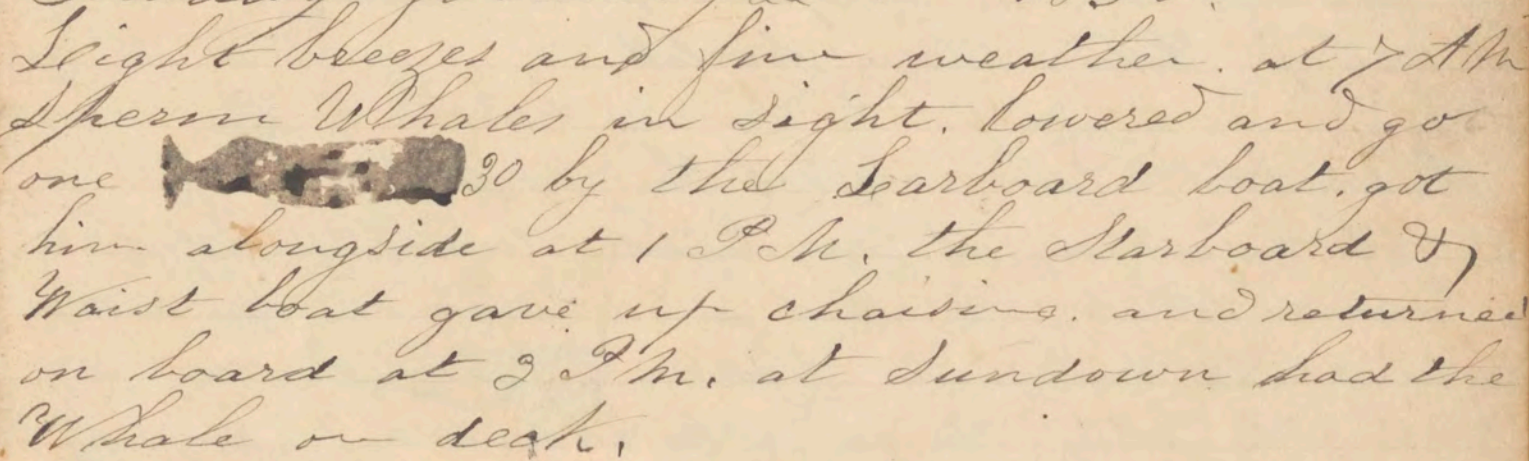 Leight breezes and fine weather. at 7 AM
Sperm Whales in Sight. lowered and go
one 30 by the Larboard boat. got
him alongside at 1 P.M. the Starboard &
Waist boat gave up chaising. and returned
on board at 3 P.M. at Sundown had the
Whale on deck.